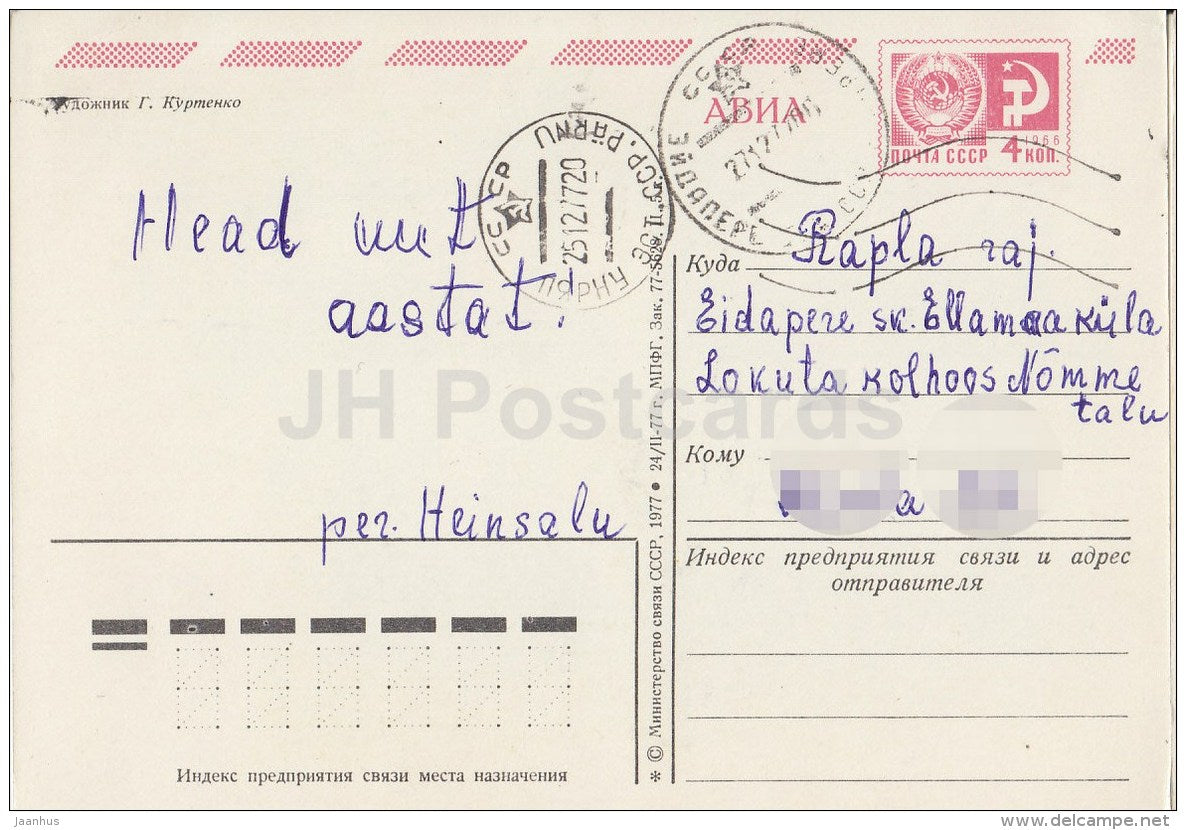 Художник Г. Куртенко
АВИА
ПОЧТА СССР 4 КОП.
1966
СССР PÄRNU
25 12 77 20
ПЯРНУ ЭС
ССР. PÄRNU
СССР
ЭЙДАПЕРЕ
Head uut
aastat!
per. Heinsalu
Куда Rapla raj.
Eidapere sk. Ellamaa küla
Lokuta kolhoos Nõmme
talu
Кому
Индекс предприятия связи и адрес
отправителя
Индекс предприятия связи места назначения
* © Министерство связи СССР, 1977 • 24/II-77 г. МПФГ. Зак. 77-5628. Ц. 5 к.
JH Postcards
Jaanhus
www.delcampe.net